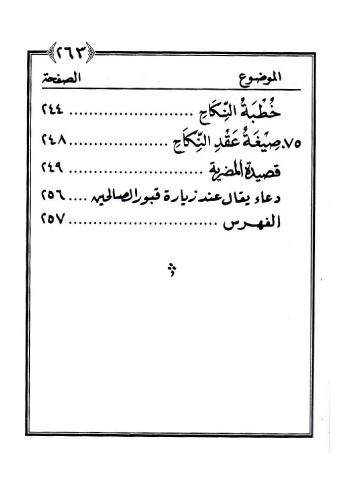 ﴿٢٦٣﴾
الموضوع الصفحة
خُطْبَةُ النِّكَاحِ ........................ ٢٤٤
٧٥. صِيْغَةُ عَقْدِ النِّكَاحِ .................. ٢٤٨
قصيدة المضرية ........................ ٢٤٩
دعاء يقال عند زيارة قبور الصالحين .... ٢٥٦
الفهرس ............................ ٢٥٧